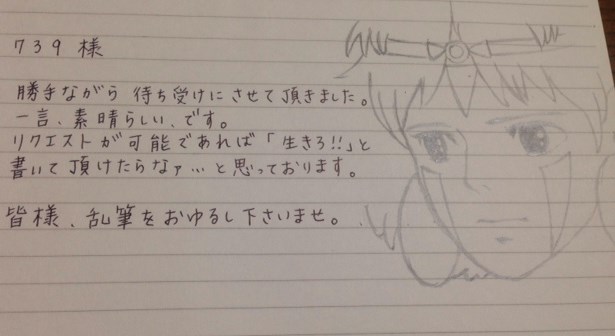 739 様
勝手ながら 待ち受けに させて頂きました。
一言、素晴らしい、です。
リクエストが可能であれば「生きろ!!」と
書いて頂けたらなァ…と思っております。
皆様、乱筆をおゆるし下さいませ。